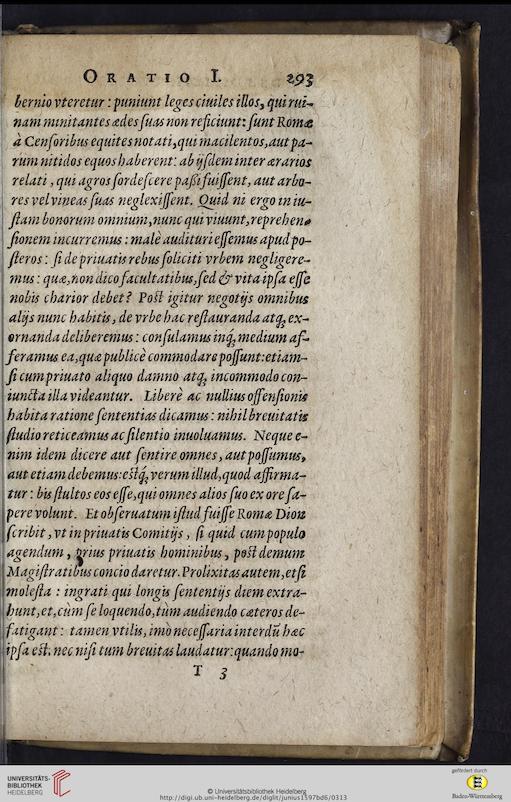 ORATIO I. 293
bernio vteretur : puniunt leges ciuiles illos, qui rui-
nam minitantes ædes suas non reficiunt: sunt Romæ
à Censoribus equites notati, qui macilentos, aut pa-
rùm nitidos equos haberent: ab ijsdem inter ærarios
relati, qui agros sordescere paßi fuissent, aut arbo-
res vel vineas suas neglexissent. Quid ni ergo in iu-
stam bonorum omnium, nunc qui viuunt, reprehen-
sionem incurremus : malè audituri essemus apud po-
steros : si de priuatis rebus soliciti vrbem negligere-
mus : quæ, non dico facultatibus, sed & vita ipsa esse
nobis charior debet? Post igitur negotijs omnibus
alijs nunc habitis, de vrbe hac restauranda atq; ex-
ornanda deliberemus : consulamus inq́; medium af-
feramus ea, quæ publicè commodare possunt: etiam-
si cum priuato aliquo damno atq; incommodo con-
iuncta illa videantur. Liberè ac nullius offensionis
habita ratione sententias dicamus : nihil breuitatis
studio reticeamus ac silentio inuoluamus. Neque e-
nim idem dicere aut sentire omnes, aut possumus,
aut etiam debemus: estq́; verum illud, quod affirma-
tur : bis stultos eos esse, qui omnes alios suo ex ore sa-
pere volunt. Et obseruatum istud fuisse Romæ Dion
scribit, vt in priuatis Comitijs, si quid cum populo
agendum, prius priuatis hominibus, post demum
Magistratibus concio daretur. Prolixitas autem, etsi
molesta : ingrati qui longis sententijs diem extra-
hunt, et, cùm se loquendo, tùm audiendo cæteros de-
fatigant : tamen vtilis, imò necessaria interdū hæc
ipsa est: nec nisi tum breuitas laudatur: quando mo-
T 3
UNIVERSITÄTS-
BIBLIOTHEK
HEIDELBERG
© Universitätsbibliothek Heidelberg
http://digi.ub.uni-heidelberg.de/diglit/junius1597bd6/0313
gefördert durch
Baden-Württemberg